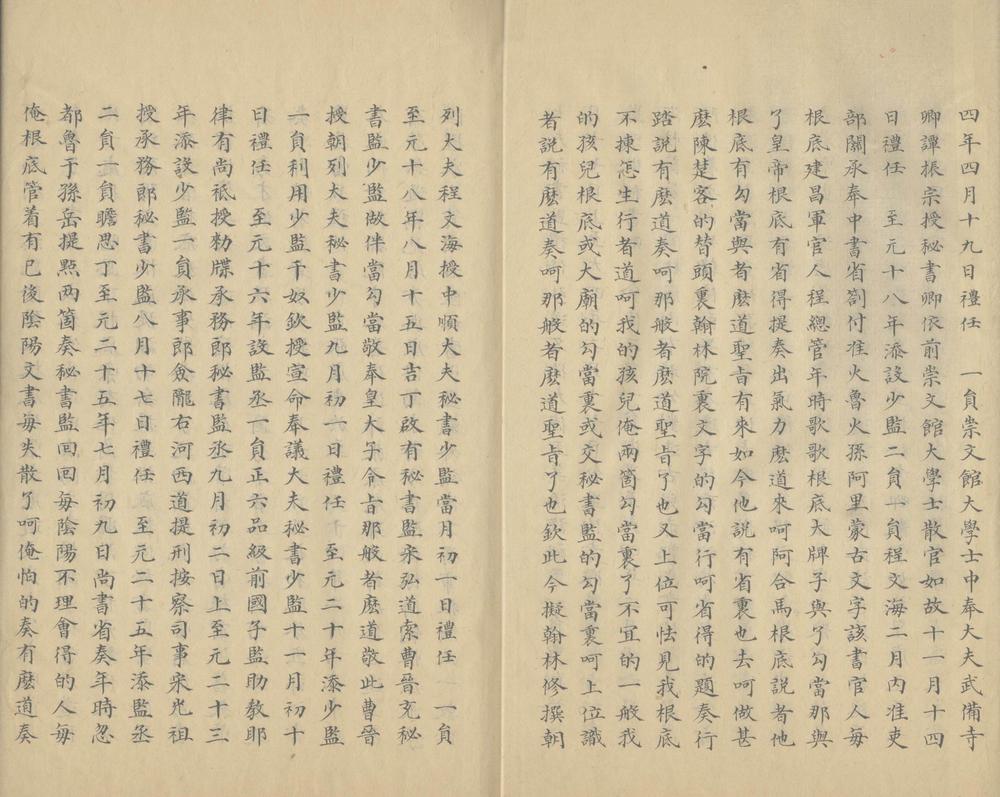 四年四月十九日禮任 一貟崇文館大學士中奉大夫武備寺
卿譚振宗授秘書卿依前崇文館大學士散官如故十一月十四
日禮任 至元十八年添設少監二貟一貟程文海二月內准吏
部關承奉中書省劄付准火魯火孫阿里蒙古文字該書官人每
根底建昌軍官人程總管年時歌歌根底大牌子與了勾當那與
了皇帝根底有省得提奏出氣力麽道來呵阿合馬根底説者他
根底有勾當與者麽道聖㫖有來如今他説有省裏也去呵做甚
麽陳楚客的替頭裏翰林院裏文字的勾當行呵省得的題奏行
踏説有麽道奏呵那般者麽道聖㫖了也又上位可怯見我根底
不揀怎生行者道呵我的孩兒俺兩箇勾當裏了不宜的一般我
的孩兒根底或大廟的勾當裏或交秘書監的勾當裏呵上位識
者説有麽道奏呵那般者麽道聖㫖了也欽此今擬翰林修撰朝
列大夫程文海授中順大夫秘書少監當月初一日禮任 一貟
至元十八年八月十五日吉丁啟有秘書監宋弘道索曹晉充秘
書監少監做伴當勾當敬奉皇大子令㫖那般者麽道敬此曹晉
授朝列大夫秘書少監九月初一日禮任 至元二十年添少監
一貟利用少監千奴欽授宣命奉議大夫秘書少監十一月初十
日禮任 至元十六年設監丞一貟正六品級前國子監助教耶
律有尚祗授勑牒承務郎秘書監丞九月初二日上至元二十三
年添設少監一貟承事郎僉隴右河西道提刑按察司事宋光祖
授承務郎秘書少監八月十七日禮任 至元二十五年添監丞
二貟一貟贍思丁至元二十五年七月初九日尚書省奏年時忽
都魯于孫岳提㸃两箇奏秘書監回回每陰陽不理會得的人每
俺根底管着有已後陰陽文書每失散了呵俺怕的奏有麽道奏